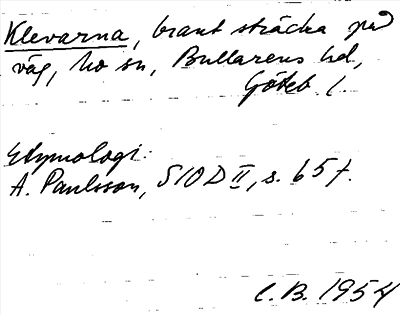 Klevarna, brant sträcka på
väg, Mo sn, Bullarens hd,
Göteb. l.
Etymologi:
A. Paulsson, SIOD II, s. 65 f.
C. B. 1954